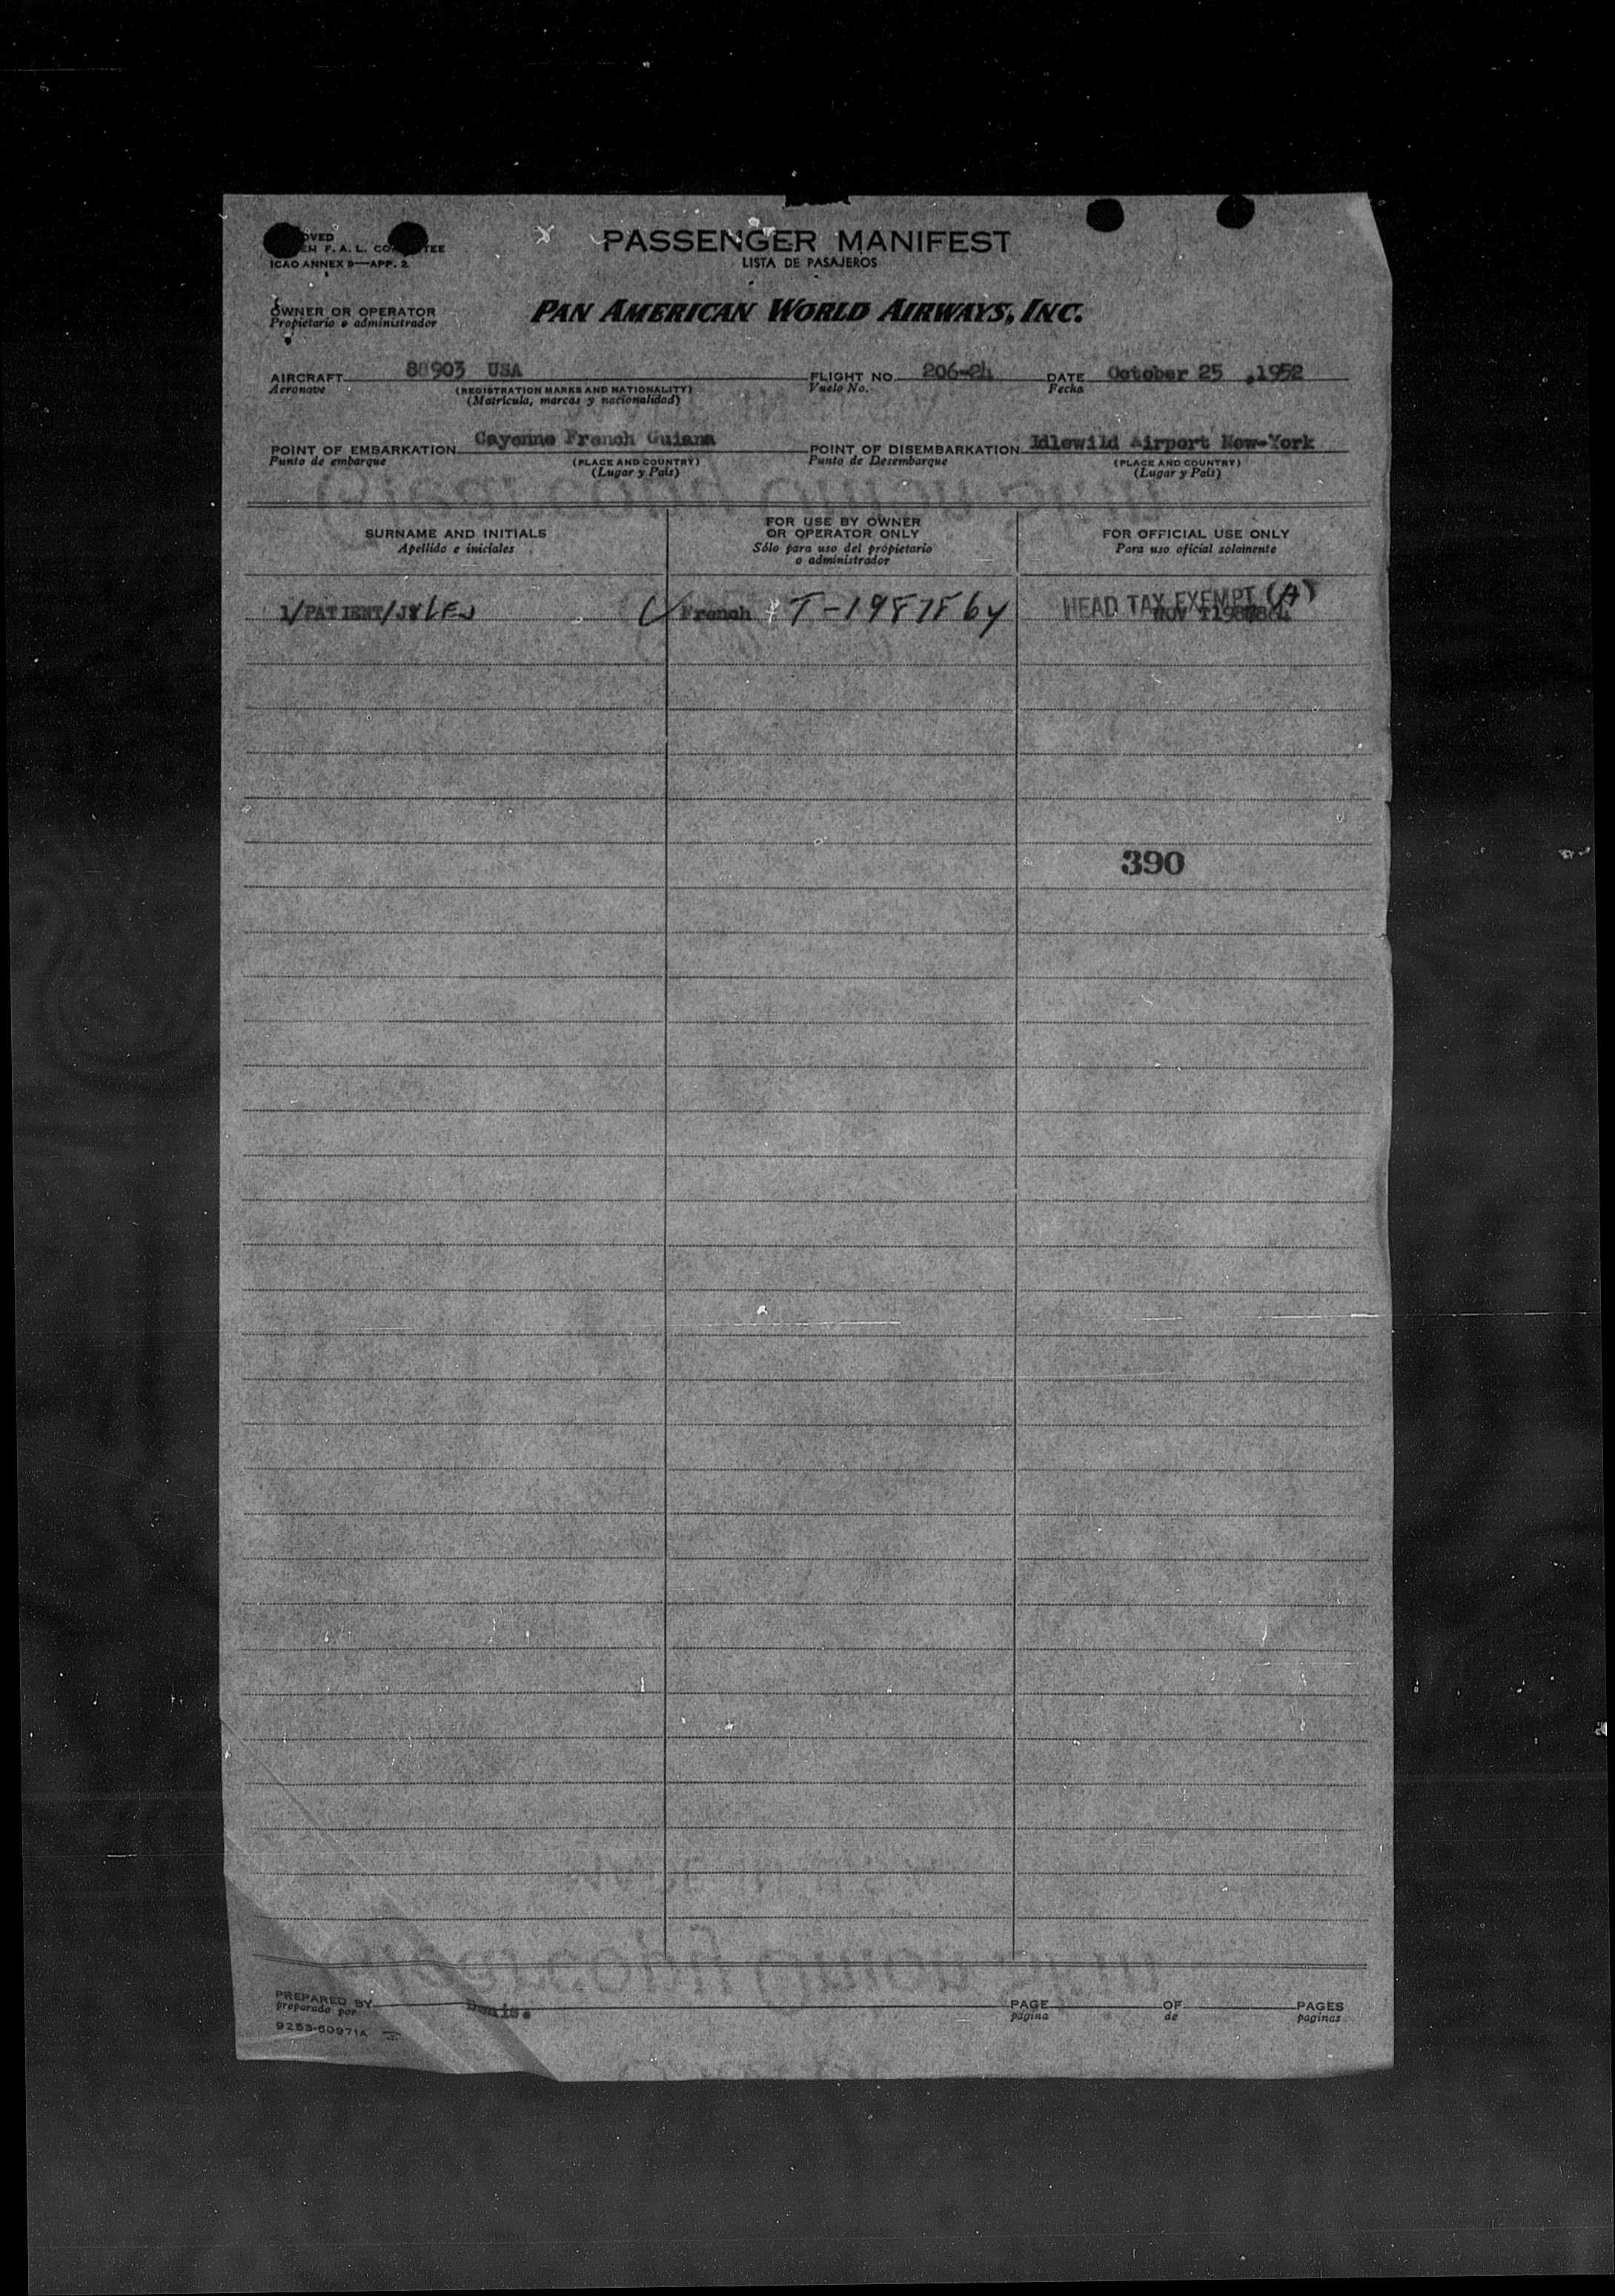 PASSENGER MANIFEST
F. A. L.
LISTA DE PASAJEROS
ICAO ANNEX 9—APP. 2
OWNER OR OPERATOR PAN AMERICAN WORLD AIRWAYS, INC.
Propietario o administrador
AIRCRAFT 88903 USA FLIGHT NO. 206-24 DATE October 25 ,1952
Aeronave (REGISTRATION MARKS AND NATIONALITY) Vuelo No. Fecha
(Matrícula, marcas y nacionalidad)
POINT OF EMBARKATION Cayenne French Guiana POINT OF DISEMBARKATION Idlewild Airport New-York
Punto de embarque (PLACE AND COUNTRY) Punto de Desembarque (PLACE AND COUNTRY)
(Lugar y País) (Lugar y País)
SURNAME AND INITIALS FOR USE BY OWNER OR OPERATOR ONLY FOR OFFICIAL USE ONLY
Apellido e iniciales Sólo para uso del propietario o administrador Para uso oficial solamente
1/PATIENT/ French T-1987864 HEAD TAX EXEMPT (A)
390
PREPARED BY Denis. PAGE OF PAGES
preparado por página de paginas
9253-60971A